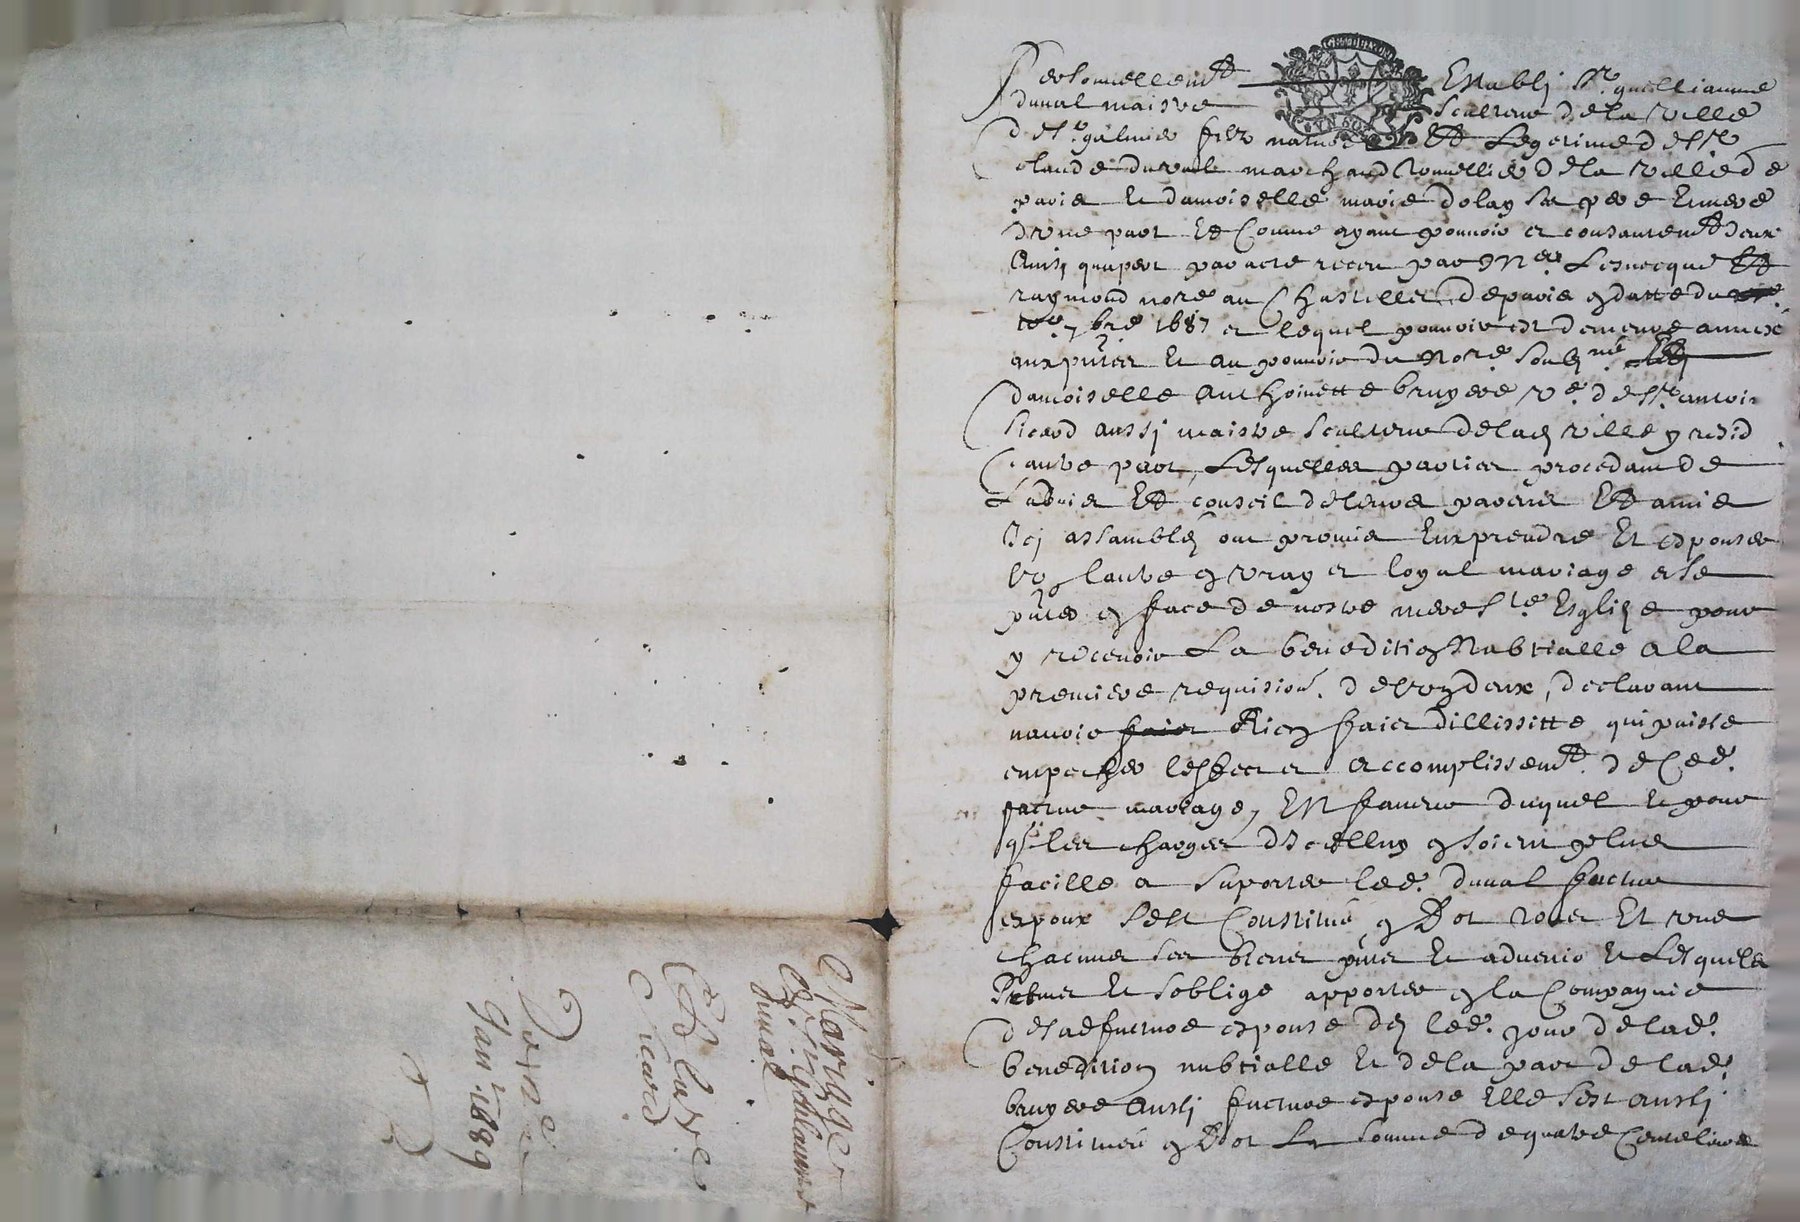 Personnellemt Estably Sr guilliaume
duval maistre sculteur de la ville
de St galmier filz naturel Et Legetime de Sr
claude duval marchand Tonnellier de la ville de
paris Et damoiselle marie dolay ses pere Et mere
d'vne part Et Comme ayant pouuoir et consantemt deux
Ainsy quapert par acte receu par Mes Leuecque Et
raymond nore au Chastellet de paris en datte du
7bre 1687 et lequel pouuoir est demeuré annexé
aux pntes Et au pouuoir du Nore soubzné Et
damoiselle Anthoinette bruyere ve de Sr antoin
sicard aussy maistre sculteur de lad ville y resid
d'autre part, Lesquelles parties procedant de
Laduis Et conseil de leurs parens Et amis
Icy assamblés ont promis Eux prendre Et espouser
lvn lautre en vray et loyal mariage et se
pnter en face de nostre mere Ste Esglise pour
y receuoir La benedition Nubtialle a la
premiere requision. de lvn deux, declarant
nauoir faict Rien faict dillissitte qui puisse
empecher lesfect et accomplissemt. de Ced.
futur mariage, EN faueur duquel Et pour
q les charges dIcelluy en soient plus
facille a suporter led. duual futur
espoux sest Constitué en Dot tous Et vns
chacuns ses biens pnts Et aduenir Et Lesquels
Promet Et soblige apporter en la Compagnie
de sad futture espouse des led. jour de lad.
benedition nubtialle Et de la part de lad.
bruyere Aussy futture espouse Elle sest aussy
Constituée en Dot La somme de quatre Cents liures
Mariage
de Sr Guillaume
duual
Et la ve
Sicard
Du
Janr. 1689